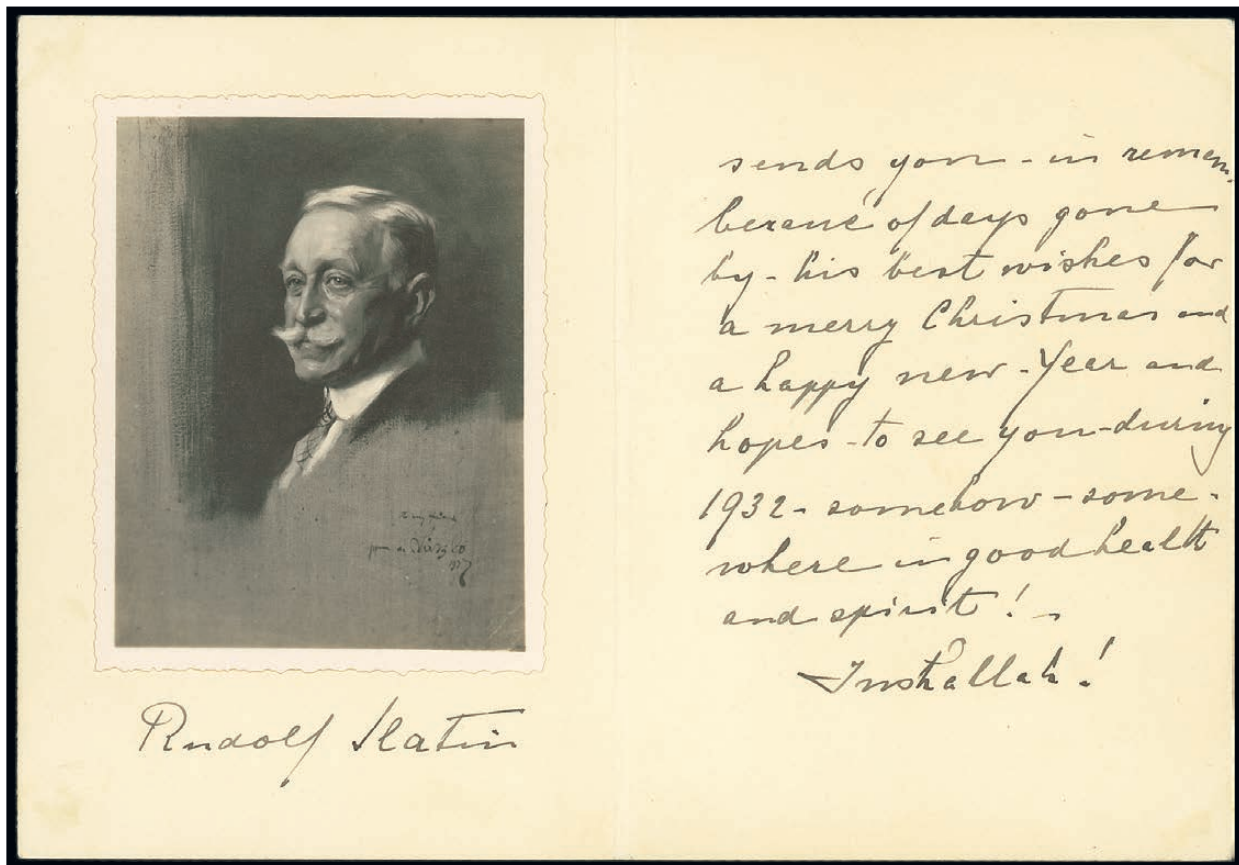 Rudolf Slatin
sends you - in remem-
berance of days gone
by - his best wishes for
a merry Christmas and
a happy new - Year and
hopes - to see you - during
1932 - somehow - some-
where in good health
and spirit! -
Inshallah!